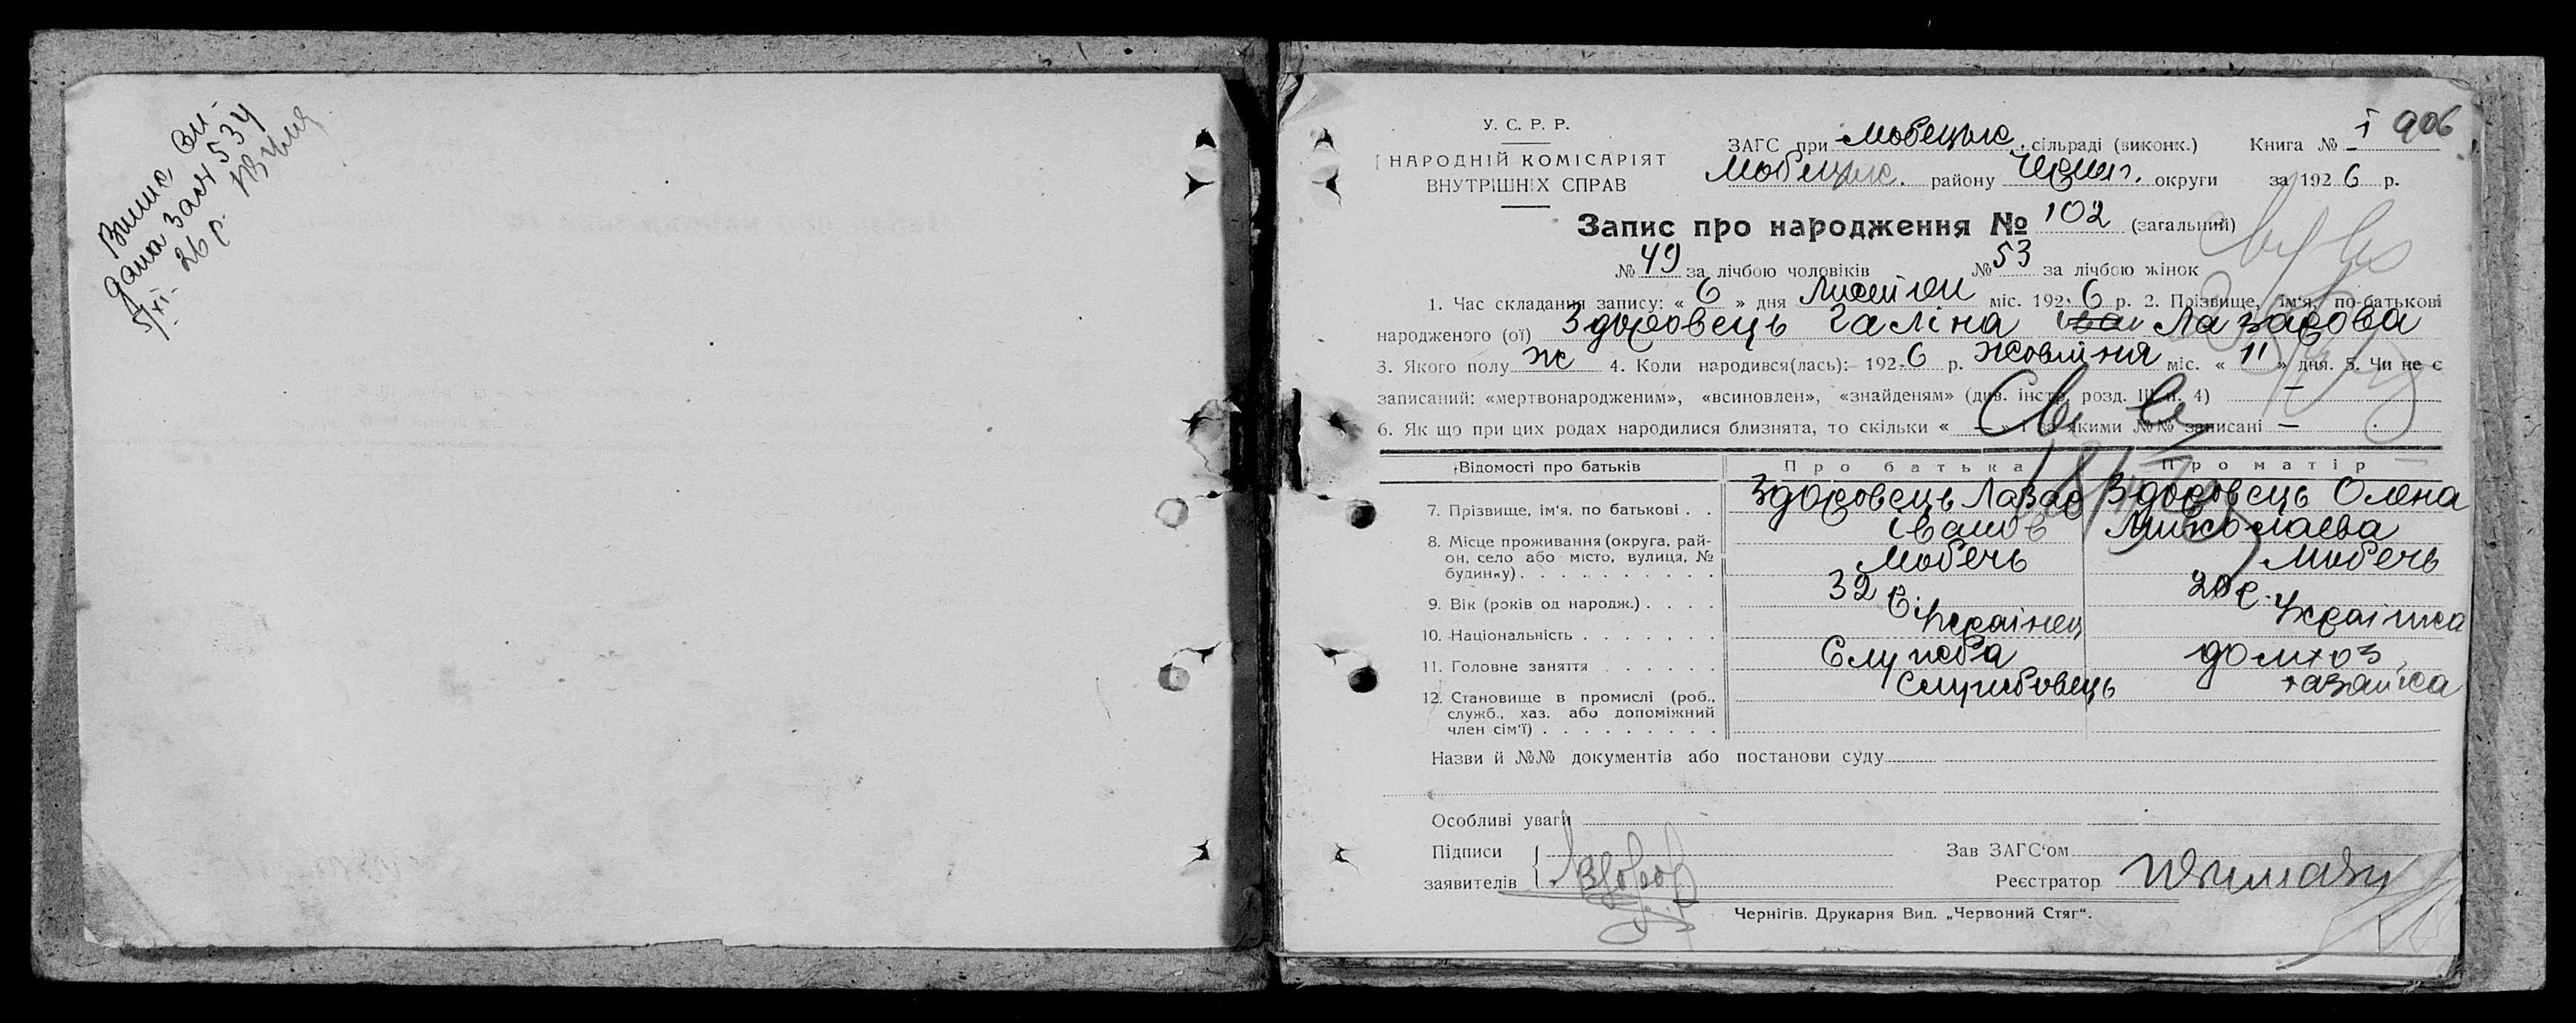 Випис ви-
дана Залч 534
5/XI-
26 р.
У. С. Р. Р.
НАРОДНІЙ КОМІСАРІЯТ
ВНУТРІШНІХ СПРАВ
ЗАГС при Любецьк. сільраді (виконк.) Книга № I 906
Любецьк. району Черніг. округи за 1926 р.
Запис про народження № 102 (загальний)
№ 49 за лічбою чоловіків № 53 за лічбою жінок
1. Час складання запису: « 6 » дня Листоп міс. 1926 р. 2. Прізвище, ім'я, по-батькові
народженого (ої) Здоровець Галіна Лазарова
3. Якого полу ж 4. Коли народився(лась): 1926 р. Жовтня міс. « 11 » дня. 5. Чи не є
записаний: «мертвонародженим», «всиновлен», «знайденям» (див. інстр. розд. III п. 4) —
6. Як що при цих родах народилися близнята, то скільки « — » і за якими №№ записані —
Відомості про батьків Про батька Про матір
7. Прізвище, ім'я, по батькові . . Здоровець Лазар Здоровець Олена
Іванов Миколаєва
8. Місце проживання (округа, рай-
он, село або місто, вулиця, №
будинку) . . . . . . . . . . Любечь Любечь
9. Вік (років од народж.) . . . . 32 р. 20 р.
10. Національність . . . . . . . Українец Українка
11. Головне заняття . . . . . . Служба домхоз.
12. Становище в промислі (роб., Службовець хазайка
служб., хаз. або допоміжний
член сім'ї) . . . . . . . . .
Назви й №№ документів або постанови суду
Особливі уваги
Підписи
заявителів
Зав ЗАГС'ом
Реєстратор
Чернігів. Друкарня Вид. „Червоний Стяг“.